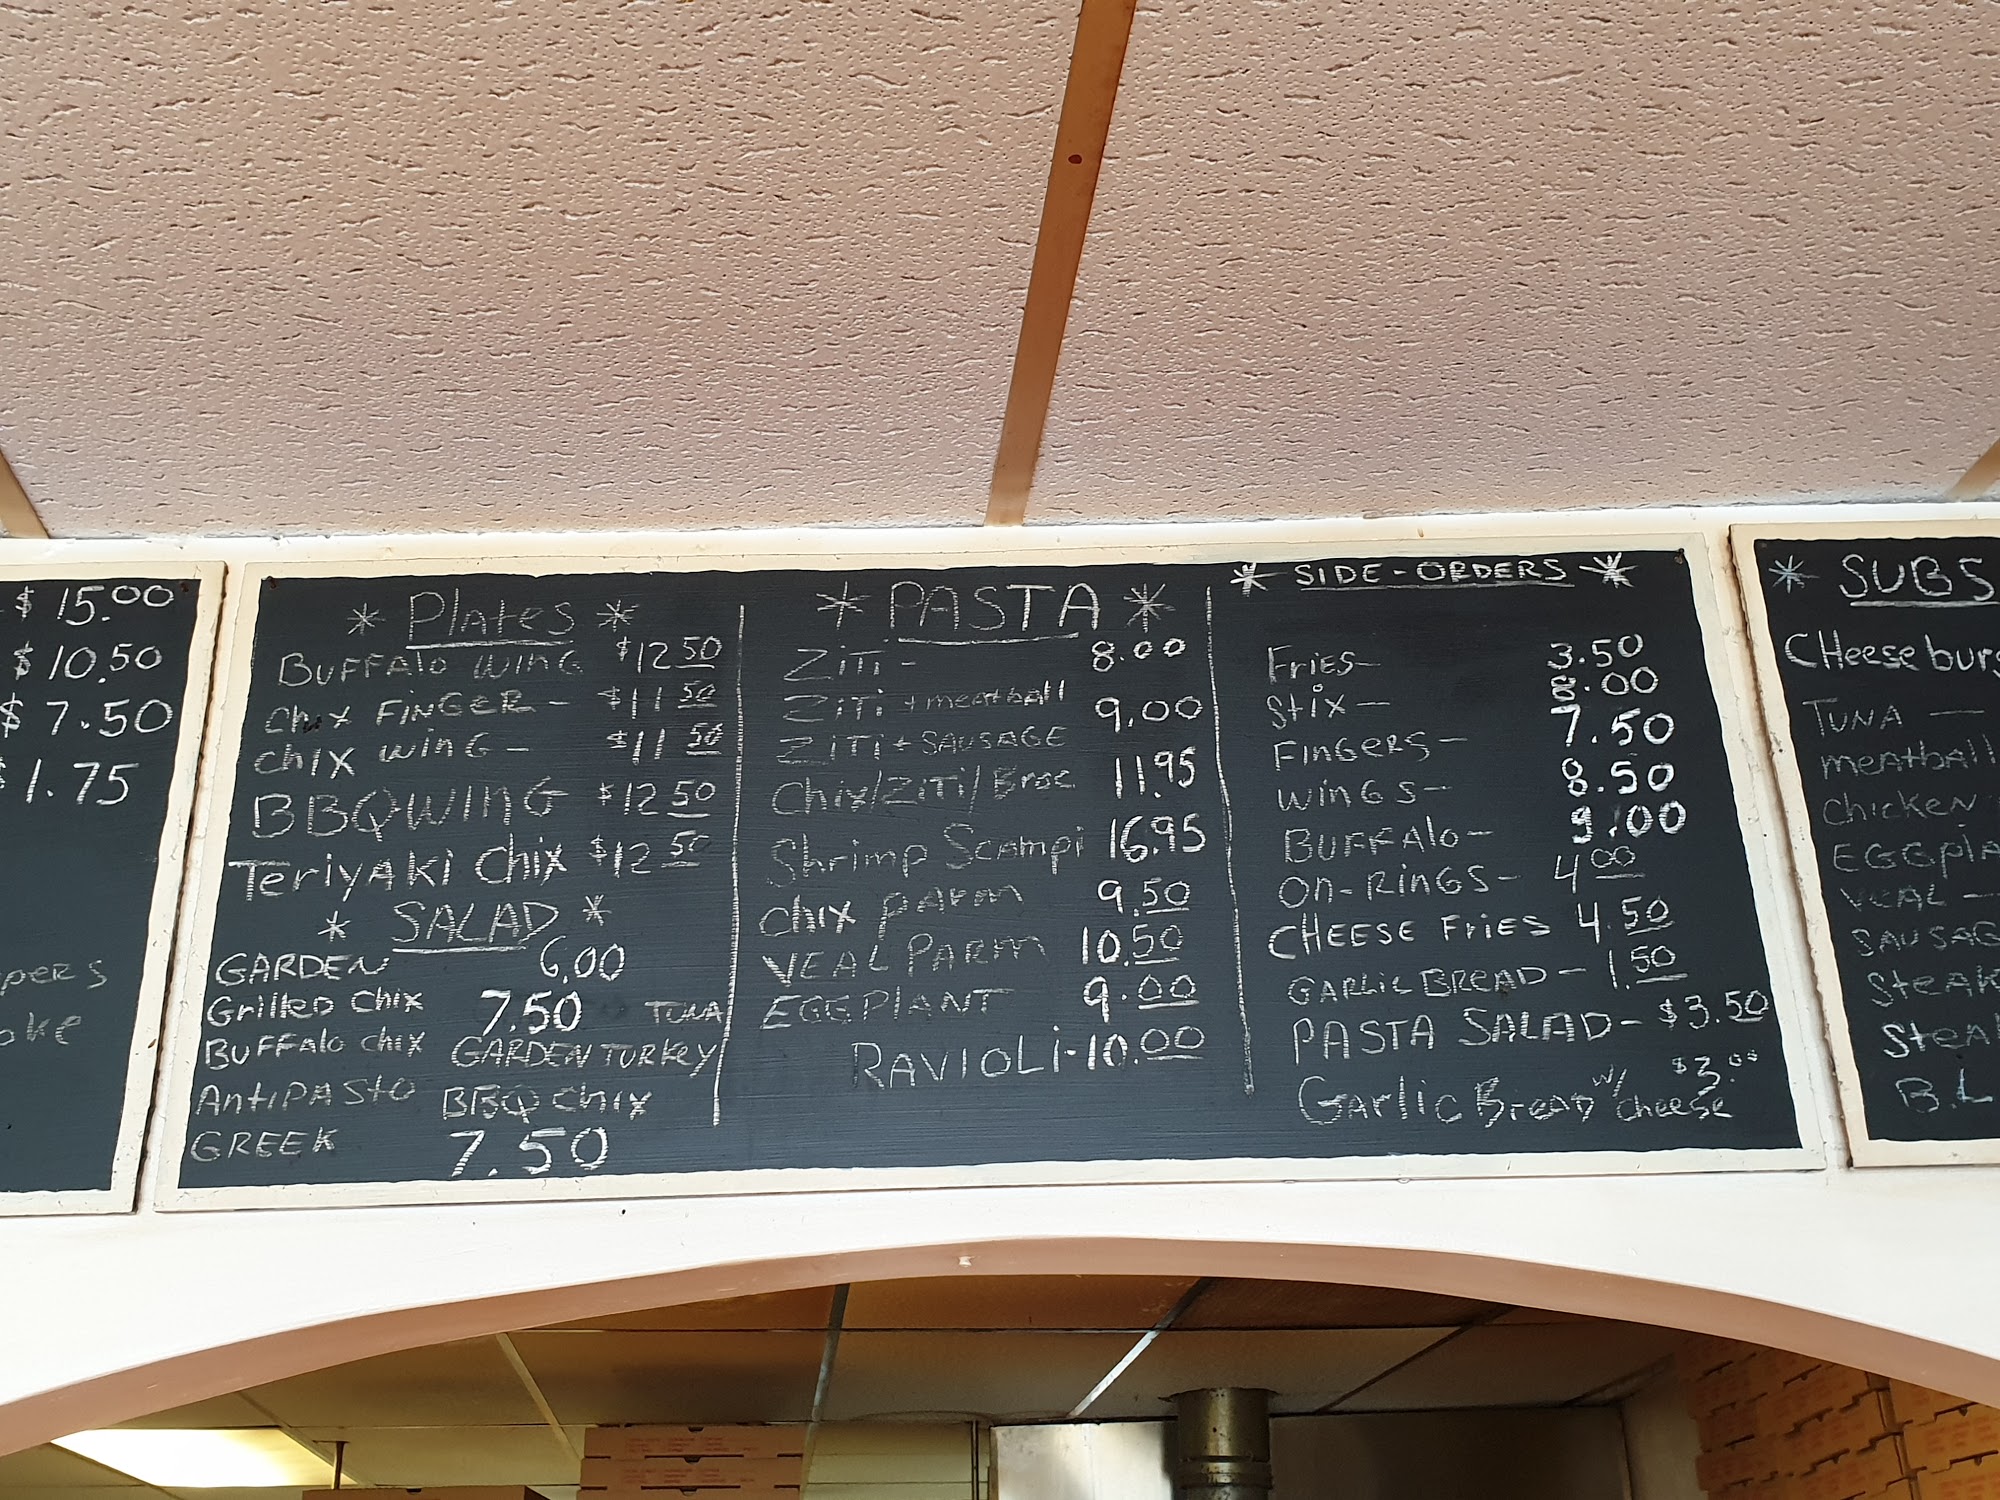 $ 15.00
$ 10.50
$ 7.50
$1.75
pers
oke
* Plates *
BUFFALO WING $12 50
CHIX FINGER - $11 50
CHIX WING - $11 50
BBQ WING $12 50
Teriyaki Chix $12 50
* SALAD *
GARDEN 6.00
Grilled Chix 7.50 TUNA
BUFFALO CHIX GARDEN TURKEY
ANTIPASTO BBQ CHIX
GREEK 7.50
* PASTA *
ZITI - 8.00
ZITI + meatball
ZITI + SAUSAGE 9.00
Chix/ZITI/Broc 11.95
Shrimp Scampi 16.95
Chix Parm 9.50
VEAL PARM 10.50
EGGPLANT 9.00
RAVIOLI - 10.00
* SIDE - ORDERS *
Fries - 3.50
Stix - 8.00
FINGERS - 7.50
WINGS - 8.50
BUFFALO - 9.00
ON-RINGS - 4 00
CHEESE FRIES 4.50
GARLIC BREAD - 1.50
PASTA SALAD - $3.50
Garlic Bread w/ cheese $3.00
* SUBS
CHeeseburg
TUNA —
meatball
CHICKEN
EGGPLA
VEAL —
SAUSAG
Steak
Steak
B.L